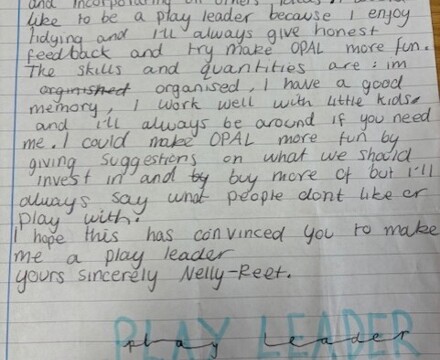 and incorporating on others ideas. I would
like to be a play leader because I enjoy
tidying and I'll always give honest
feedback and try make OPAL more fun.
The skills and quantities are : im
orginished organised, I have a good
memory, I work well with little kids
and i'll always be around if you need
me. I could make OPAL more fun by
giving suggestions on what we should
invest in and by buy more of but I'll
always say what people dont like or
play with.
I hope this has convinced you to make
me a play leader
yours sincerely Nelly-Reet.
PLAY LEADER
play leader